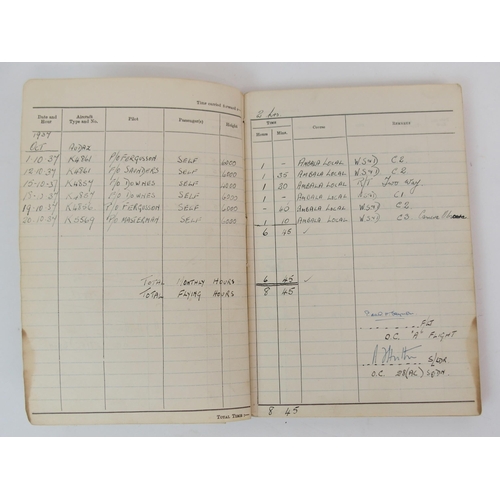 Time carried forward :—
Date and Hour Aircraft Type and No. Pilot Passenger(s) Height
1937
Oct AUDAX
1·10·37 K4861 P/O FERGUSSON SELF 6000
12·10·37 K4861 P/O SAUNDERS SELF 6000
15·10·37 K4857 P/O DOWNES SELF 6000
K4857 P/O DOWNES SELF 6000
19·10·37 P/O FERGUSSON SELF 6000
20·10·37 K5569 P/O MASTERMAN SELF 6000
TOTAL MONTHLY HOURS
TOTAL FLYING HOURS
TOTAL TIME
2 hrs.
Time Course Remarks
Hours Mins.
1 – AMBALA LOCAL W S & D C2
1 35 AMBALA LOCAL W S & D C2
1 20 AMBALA LOCAL R/T Two Way
1 – AMBALA LOCAL C1
– 40 AMBALA LOCAL W S & D C2
1 10 AMBALA LOCAL W S & D C3 Camera Obscura
6 45 ✓
6 45 ✓
8 45
F/Lt
O.C. "A" FLIGHT
S/LDR
O.C. 28(AC) SQDN.
8 45